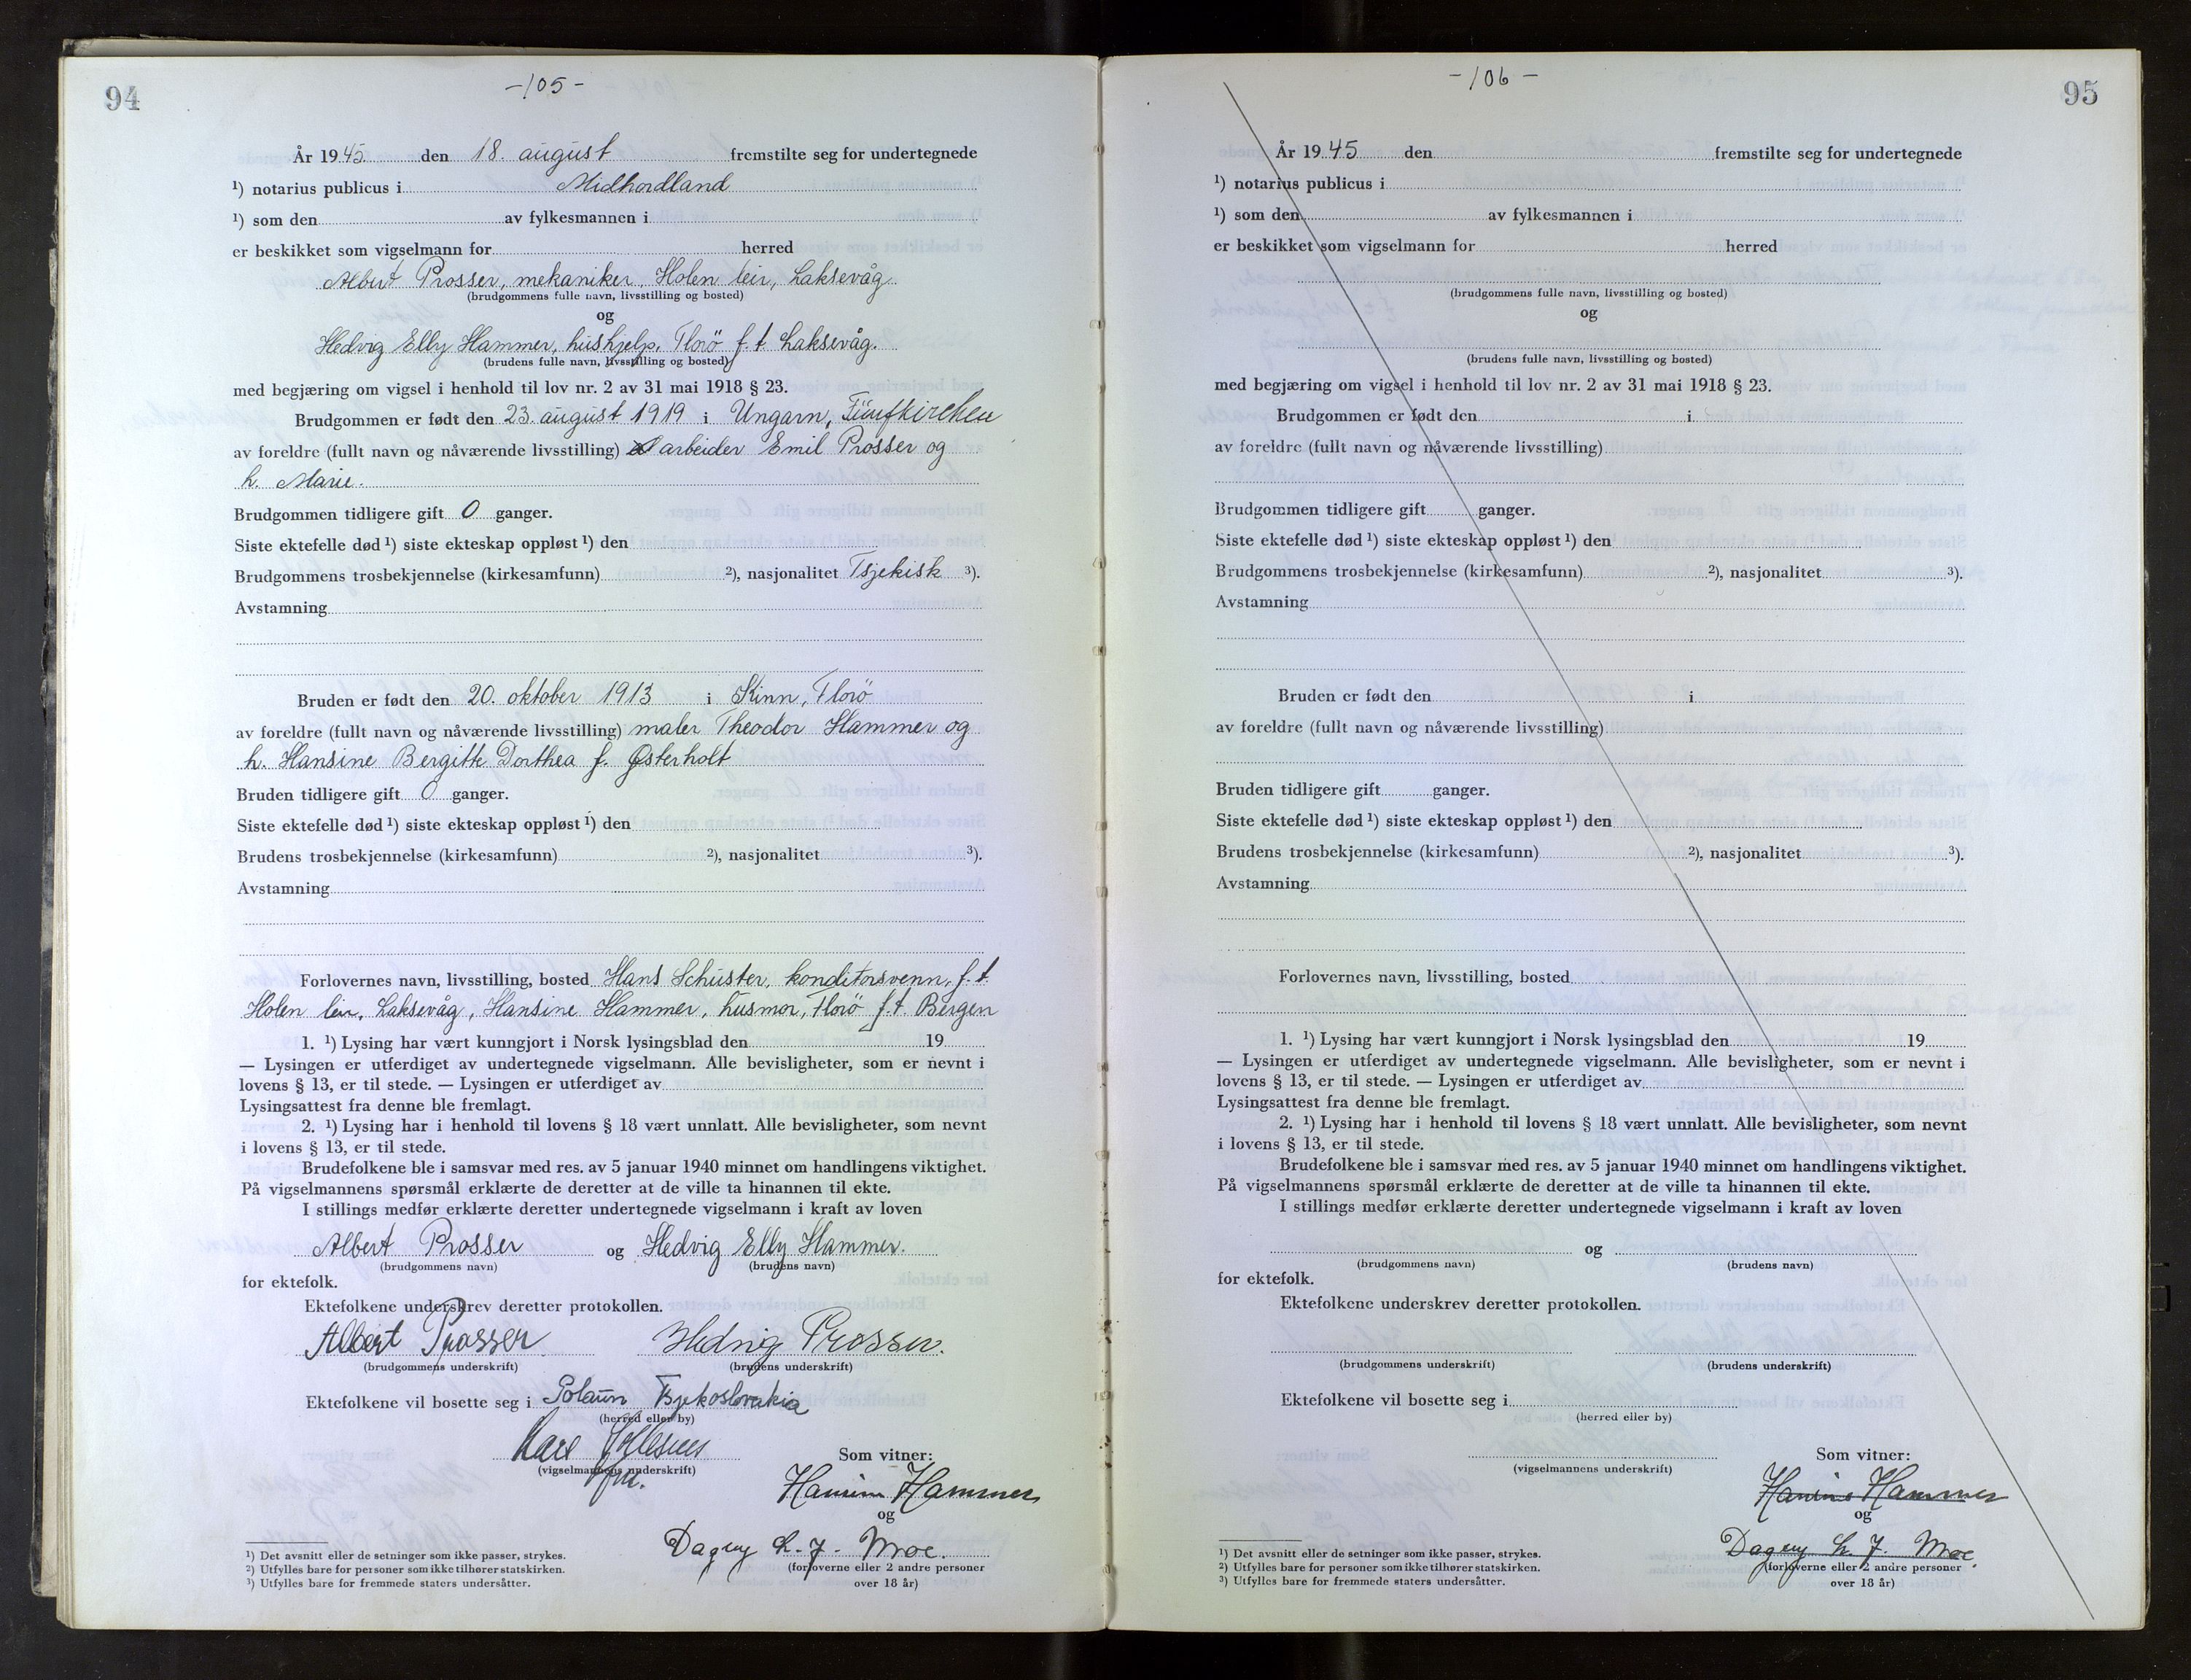 94
-105-
År 1945 den 18. august fremstilte seg for undertegnede
¹) notarius publicus i Midhordland
¹) som den av fylkesmannen i
er beskikket som vigselmann for herred
Albert Prosser, mekaniker, Holen leir, Laksevåg.
(brudgommens fulle navn, livsstilling og bosted)
og
Hedvig Elly Hammer, hushjelp, Florö f.t. Laksevåg.
(brudens fulle navn, livsstilling og bosted)
med begjæring om vigsel i henhold til lov nr. 2 av 31 mai 1918 § 23.
Brudgommen er født den 23. august 1919 i Ungarn, Fünfkirchen
av foreldre (fullt navn og nåværende livsstilling) arbeider Emil Prosser og
h. Marie.
Brudgommen tidligere gift 0 ganger.
Siste ektefelle død ¹) siste ekteskap oppløst ¹) den
Brudgommens trosbekjennelse (kirkesamfunn) ²), nasjonalitet Tsjekisk ³).
Avstamning
Bruden er født den 20. oktober 1913 i Kinn, Florö
av foreldre (fullt navn og nåværende livsstilling) maler Theodor Hammer og
h. Hansine Bergitte Dorthea f. Østerholt
Bruden tidligere gift 0 ganger.
Siste ektefelle død ¹) siste ekteskap oppløst ¹) den
Brudens trosbekjennelse (kirkesamfunn) ²), nasjonalitet ³).
Avstamning
Forlovernes navn, livsstilling, bosted Hans Schuster, konditorsvenn, f.t.
Holen leir, Laksevåg, Hansine Hammer, husmor, Florö f.t. Bergen
1. ¹) Lysing har vært kunngjort i Norsk lysingsblad den 19
— Lysingen er utferdiget av undertegnede vigselmann. Alle bevisligheter, som er nevnt i
lovens § 13, er til stede. — Lysingen er utferdiget av
Lysingsattest fra denne ble fremlagt.
2. ¹) Lysing har i henhold til lovens § 18 vært unnlatt. Alle bevisligheter, som nevnt
i lovens § 13, er til stede.
Brudefolkene ble i samsvar med res. av 5 januar 1940 minnet om handlingens viktighet.
På vigselmannens spørsmål erklærte de deretter at de ville ta hinannen til ekte.
I stillings medfør erklærte deretter undertegnede vigselmann i kraft av loven
Albert Prosser og Hedvig Elly Hammer.
(brudgommens navn) (brudens navn)
for ektefolk.
Ektefolkene underskrev deretter protokollen.
Albert Prosser Hedvig Prosser.
(brudgommens underskrift) (brudens underskrift)
Ektefolkene vil bosette seg i Polaun Tsjekoslovakia
(herred eller by)
(vigselmannens underskrift)
Som vitner:
Hansine Hammer
og
Dagny L. J. Moe.
(forloverne eller 2 andre personer
over 18 år)
¹) Det avsnitt eller de setninger som ikke passer, strykes.
²) Utfylles bare for personer som ikke tilhører statskirken.
³) Utfylles bare for fremmede staters undersåtter.
95
-106-
År 1945 den fremstilte seg for undertegnede
¹) notarius publicus i
¹) som den av fylkesmannen i
er beskikket som vigselmann for herred
(brudgommens fulle navn, livsstilling og bosted)
og
(brudens fulle navn, livsstilling og bosted)
med begjæring om vigsel i henhold til lov nr. 2 av 31 mai 1918 § 23.
Brudgommen er født den i
av foreldre (fullt navn og nåværende livsstilling)
Brudgommen tidligere gift ganger.
Siste ektefelle død ¹) siste ekteskap oppløst ¹) den
Brudgommens trosbekjennelse (kirkesamfunn) ²), nasjonalitet ³).
Avstamning
Bruden er født den i
av foreldre (fullt navn og nåværende livsstilling)
Bruden tidligere gift ganger.
Siste ektefelle død ¹) siste ekteskap oppløst ¹) den
Brudens trosbekjennelse (kirkesamfunn) ²), nasjonalitet ³).
Avstamning
Forlovernes navn, livsstilling, bosted
1. ¹) Lysing har vært kunngjort i Norsk lysingsblad den 19
— Lysingen er utferdiget av undertegnede vigselmann. Alle bevisligheter, som er nevnt i
lovens § 13, er til stede. — Lysingen er utferdiget av
Lysingsattest fra denne ble fremlagt.
2. ¹) Lysing har i henhold til lovens § 18 vært unnlatt. Alle bevisligheter, som nevnt
i lovens § 13, er til stede.
Brudefolkene ble i samsvar med res. av 5 januar 1940 minnet om handlingens viktighet.
På vigselmannens spørsmål erklærte de deretter at de ville ta hinannen til ekte.
I stillings medfør erklærte deretter undertegnede vigselmann i kraft av loven
og
(brudgommens navn) (brudens navn)
for ektefolk.
Ektefolkene underskrev deretter protokollen.
(brudgommens underskrift) (brudens underskrift)
Ektefolkene vil bosette seg i
(herred eller by)
(vigselmannens underskrift)
Som vitner:
Hansine Hammer
og
Dagny L. J. Moe.
(forloverne eller 2 andre personer
over 18 år)
¹) Det avsnitt eller de setninger som ikke passer, strykes.
²) Utfylles bare for personer som ikke tilhører statskirken.
³) Utfylles bare for fremmede staters undersåtter.